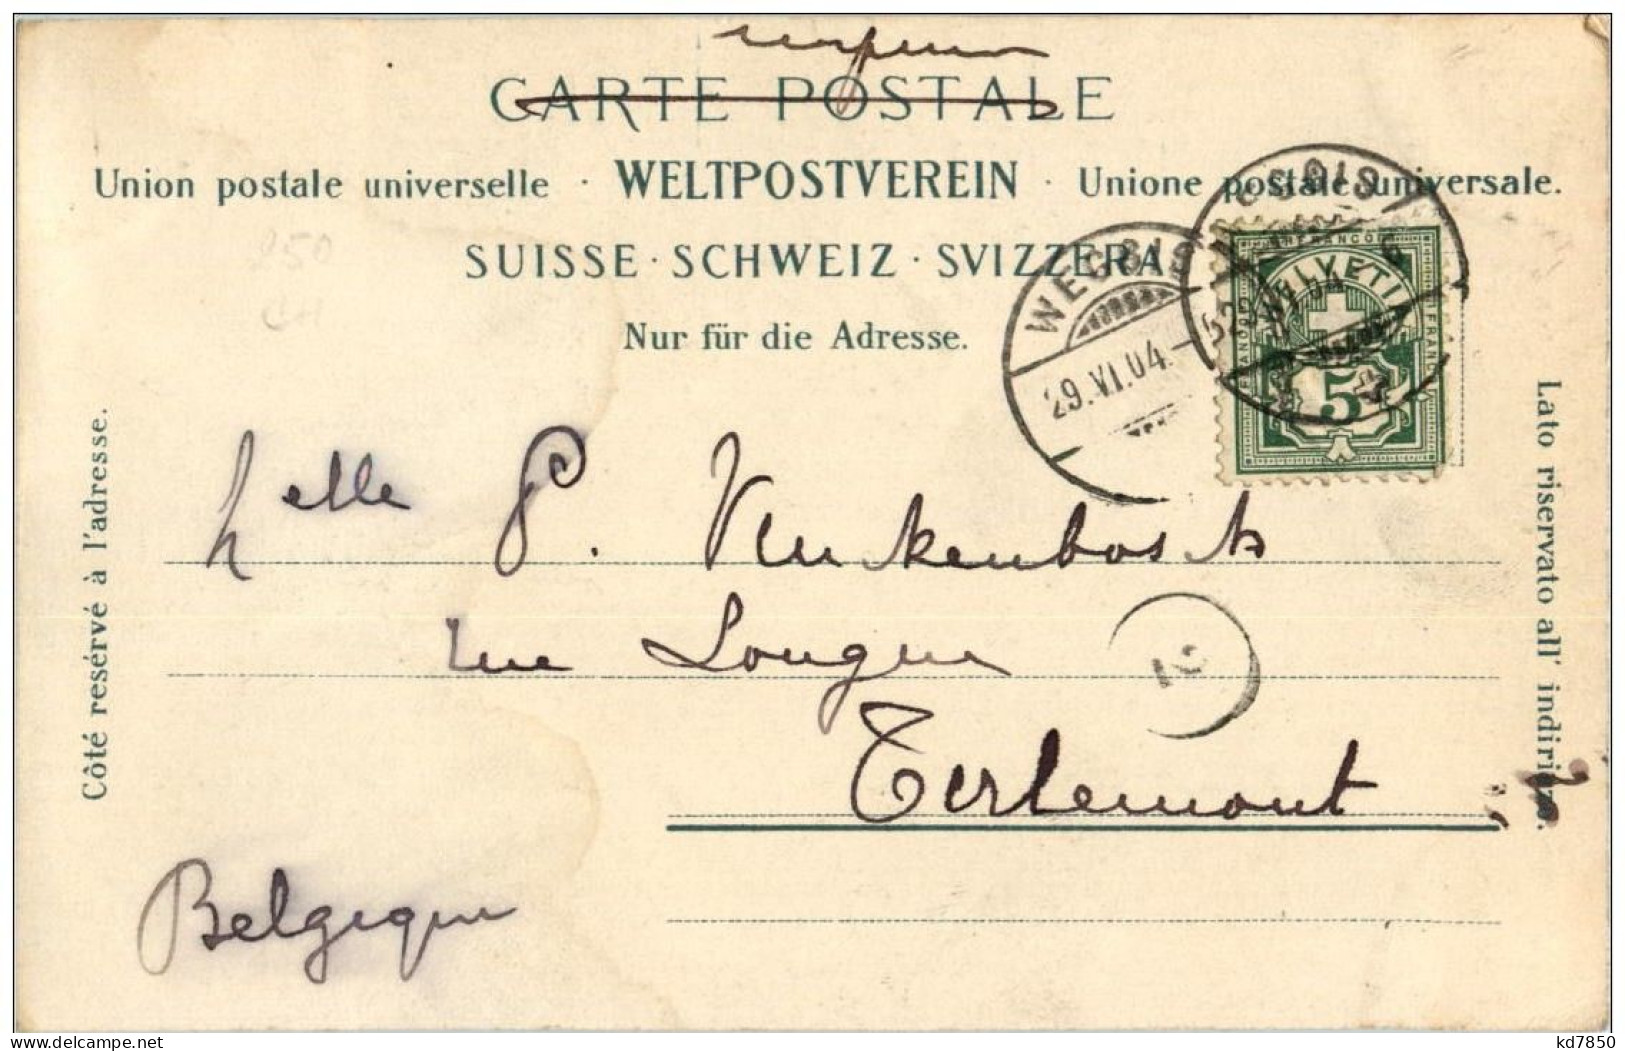 CARTE POSTALE
Union postale universelle · WELTPOSTVEREIN · Unione postale universale.
SUISSE · SCHWEIZ · SVIZZERA
Nur für die Adresse.
WEGGIS
29.VI.04.
FRANCO
HELVETIA
5
250
Côté reservé à l'adresse.
Lato riservato all' indirizzo.
Melle P. Vinckenbosch
rue Longue
2
Tirlemont
Belgique
kd7850